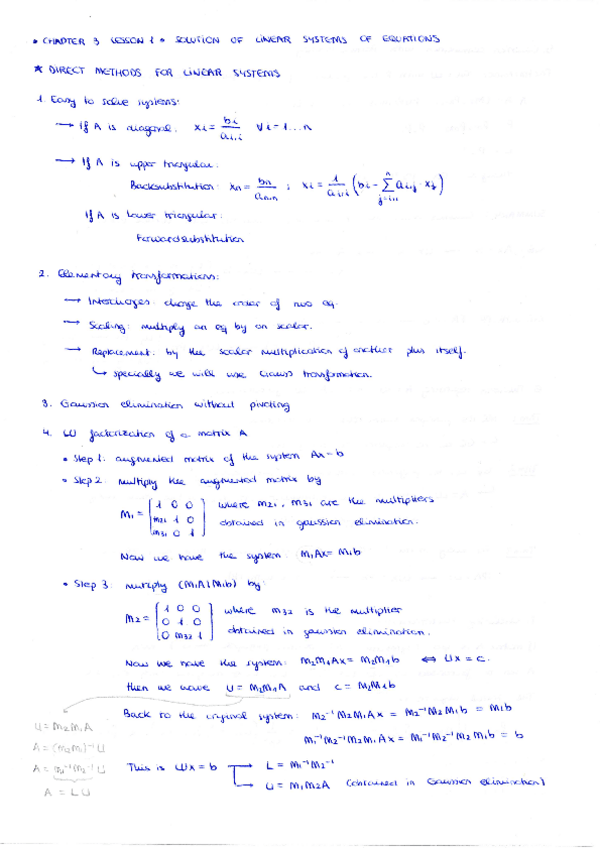 • CHAPTER 3 LESSON 1 • SOLUTION OF LINEAR SYSTEMS OF EQUATIONS
* DIRECT METHODS FOR LINEAR SYSTEMS
1. Easy to solve systems:
→ If A is diagonal: xi = bi / ai,i ∀i = 1...n
→ If A is upper triangular:
Backsubstitution: xn = bn / an,n ; xi = 1 / ai,i (bi − Σ_{j=i+1}^{n} ai,j · xj)
If A is lower triangular:
Forwardsubstitution
2. Elementary transformations:
→ Interchanges: change the order of two eq.
→ Scaling: multiply an eq by an scalar.
→ Replacement: by the scalar multiplication of another plus itself.
↳ specially we will use Gauss transformation.
3. Gaussian elimination without pivoting
4. LU factorization of a matrix A
• Step 1: augmented matrix of the system Ax = b
• Step 2: multiply the augmented matrix by
M1 = [1 0 0; m21 1 0; m31 0 1] where m21, m31 are the multipliers
obtained in gaussian elimination.
Now we have the system: M1Ax = M1b
• Step 3: multiply (M1A|M1b) by:
M2 = [1 0 0; 0 1 0; 0 m32 1] where m32 is the multiplier
obtained in gaussian elimination.
Now we have the system: M2M1Ax = M2M1b ⇔ Ux = c.
then we have U = M2M1A and c = M2M1b
Back to the original system: M2⁻¹M2M1Ax = M2⁻¹M2M1b = M1b
M1⁻¹M2⁻¹M2M1Ax = M1⁻¹M2⁻¹M2M1b = b
U = M2M1A
A = (M2M1)⁻¹U
A = M1⁻¹M2⁻¹U
A = LU
This is LUx = b → L = M1⁻¹M2⁻¹
→ U = M1M2A (obtained in Gaussian elimination)